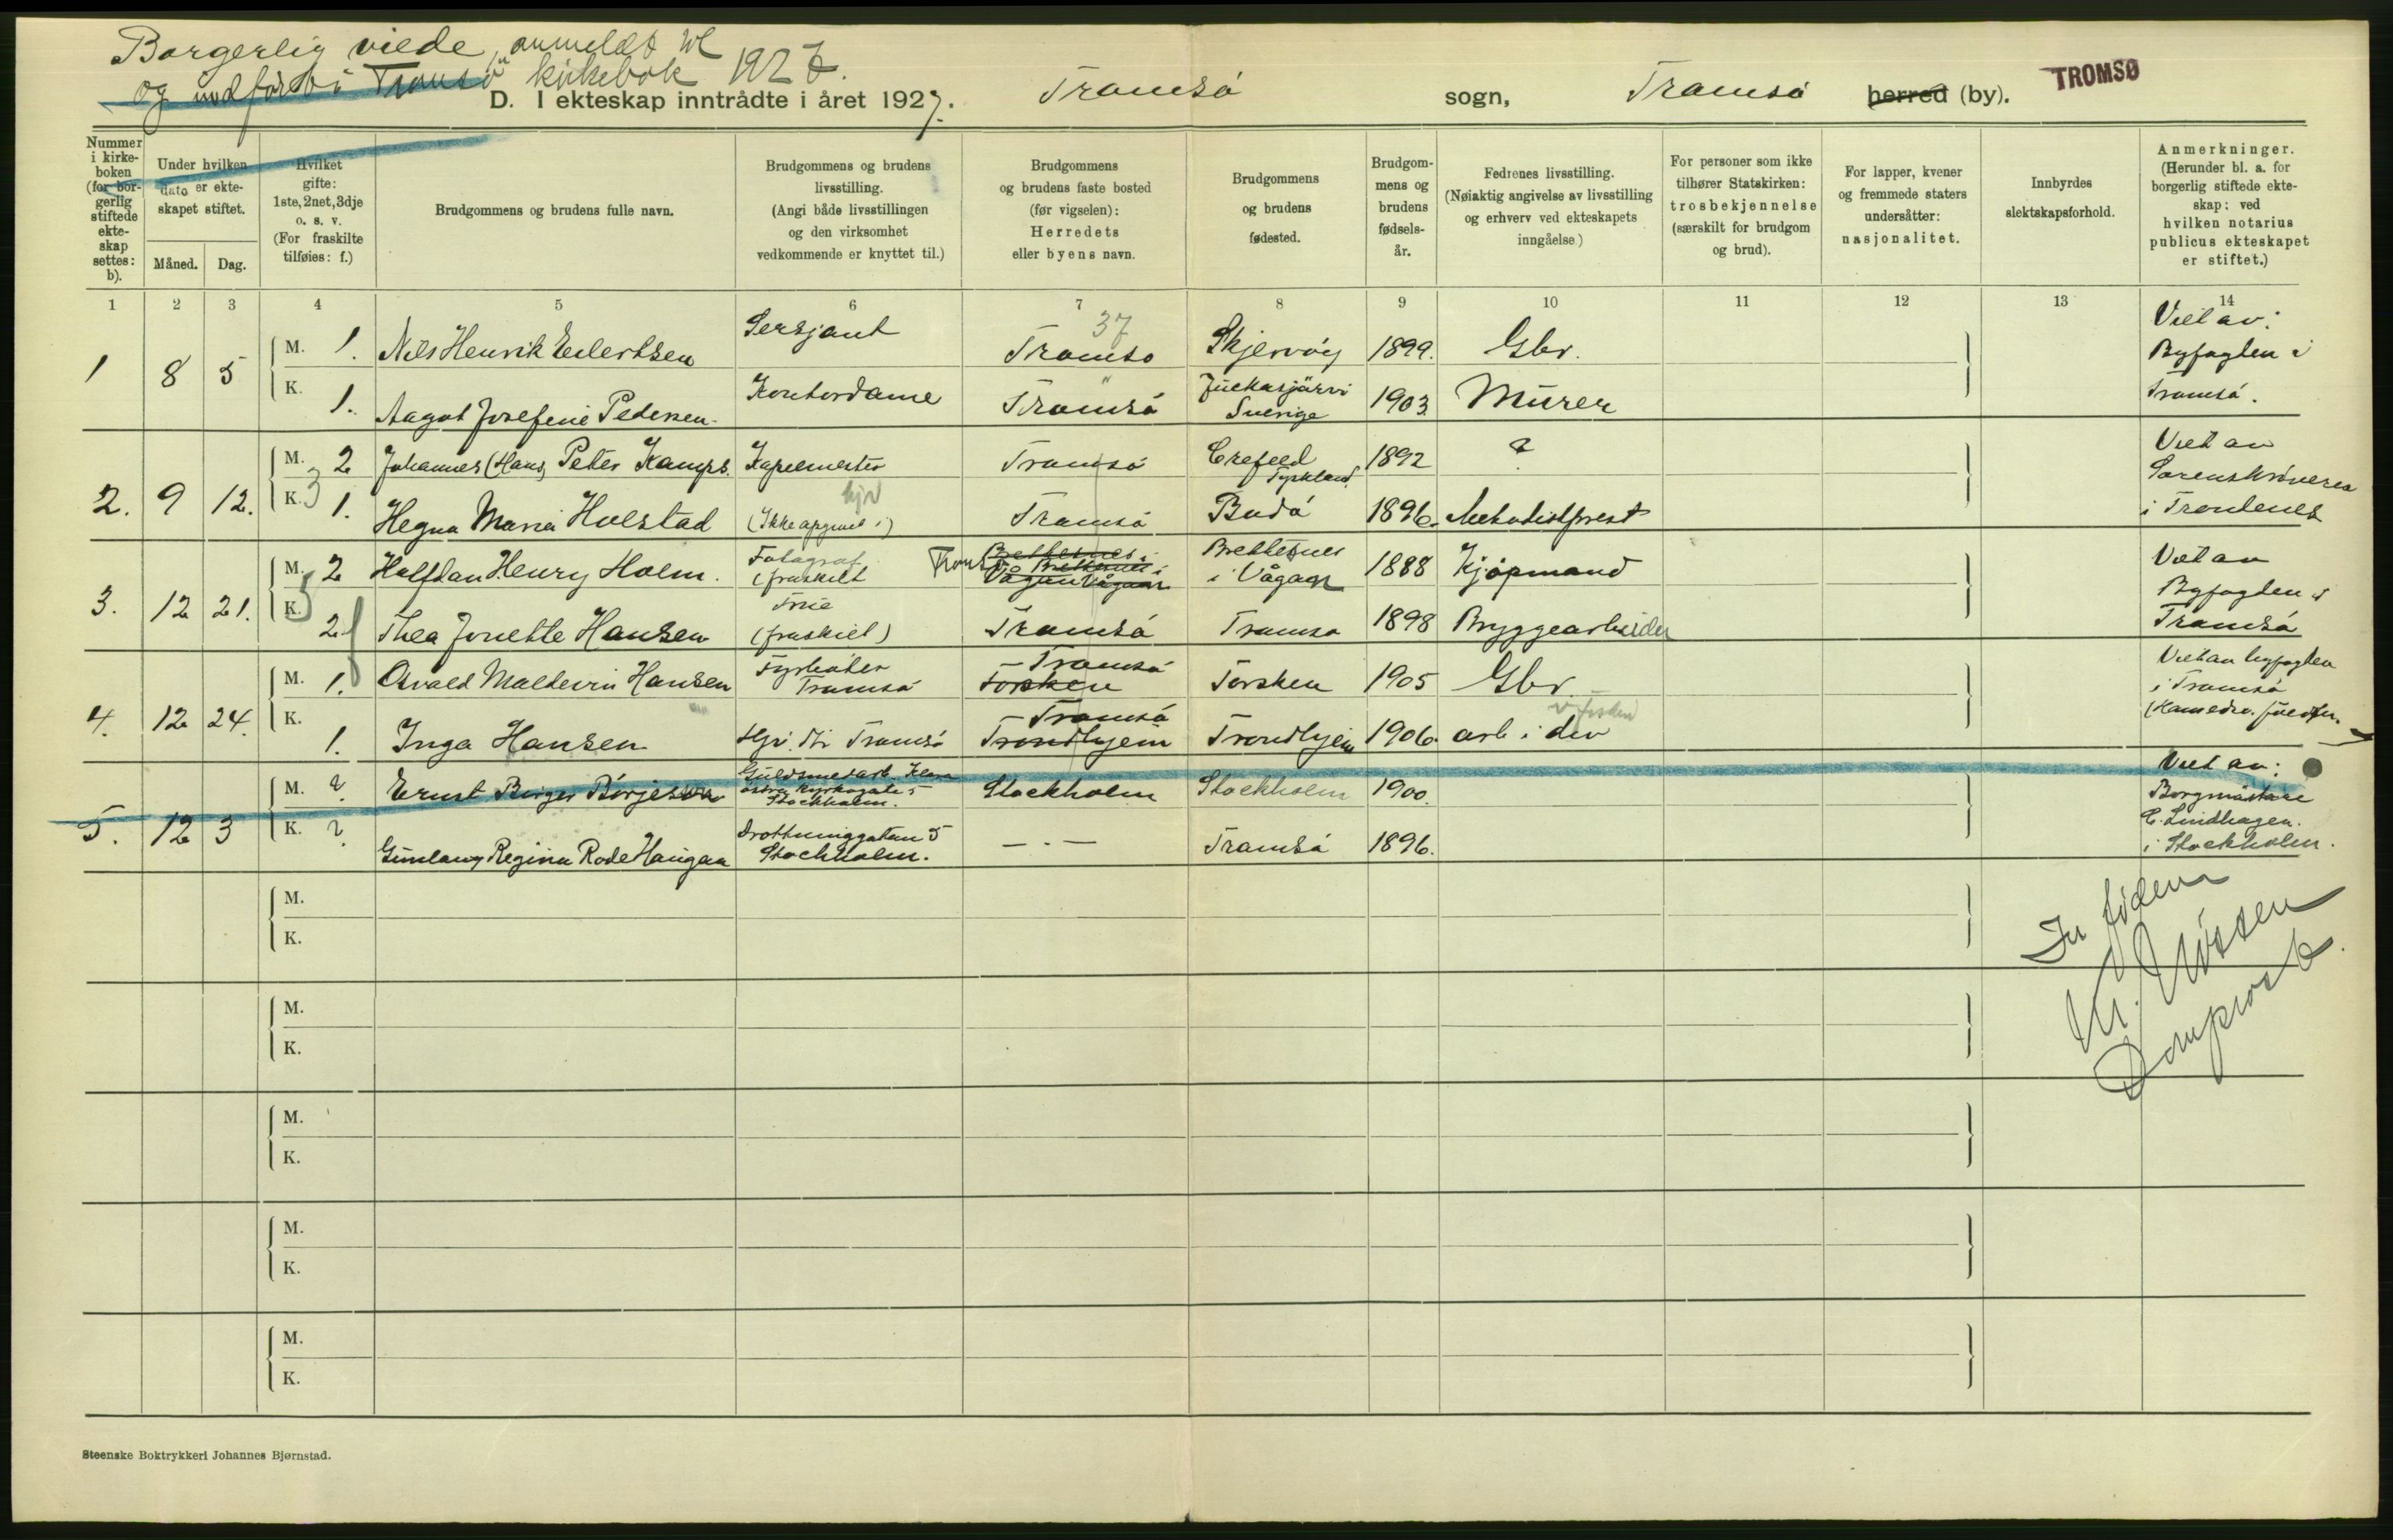 Borgerlig viede, anmeldt til
og indført i Tromsø kirkebok 1927.
D. I ekteskap inntrådte i året 1927. Tromsø sogn, Tromsø herred (by). TROMSØ
Nummer i kirke-boken (for bor-gerlig stiftede ekte-skap settes: b).
Under hvilken dato er ekte-skapet stiftet.
Måned. Dag.
Hvilket gifte: 1ste, 2net, 3dje o. s. v. (For fraskilte tilføies: f.)
Brudgommens og brudens fulle navn.
Brudgommens og brudens livsstilling. (Angi både livsstillingen og den virksomhet vedkommende er knyttet til.)
Brudgommens og brudens faste bosted (før vigselen): Herredets eller byens navn.
Brudgommens og brudens fødested.
Brudgom-mens og brudens fødsels-år.
Fedrenes livsstilling. (Nøiaktig angivelse av livsstilling og erhverv ved ekteskapets inngåelse.)
For personer som ikke tilhører Statskirken: trosbekjennelse (særskilt for brudgom og brud).
For lapper, kvener og fremmede staters undersåtter: nasjonalitet.
Innbyrdes slektskapsforhold.
Anmerkninger. (Herunder bl. a. for borgerlig stiftede ekte-skap: ved hvilken notarius publicus ekteskapet er stiftet.)
1 2 3 4 5 6 7 8 9 10 11 12 13 14
37
1 8 5 M. 1. Nils Henrik Eilertsen Sersjant Tromsø Skjervøy 1899. Gbr. Viet av: Byfogden i
K. 1. Aagot Josefine Pedersen. Kontordame Tromsø Juckasjärvi Sverige 1903 Murer Tromsø.
2. 9 12. M. 2 Johannes (Hans) Peter Kamps. Kapelmester Tromsø Crefeld Tyskland. 1892 ? Viet av Sorenskriveren
K. 3 1. Hegna Maria Holstad hjv (Ikke opgivet i) Tromsø Bodø 1896. Metodistprest i Trondenes
3. 12 21. M. 2 Halfdan Henry Holm. Fotograf (fraskilt Tromsø Brettesnes i Vågan Brettesnes i Vågan 1888 Kjøpmand Viet av Byfogden i
K. 3 2 f Thea Jonette Hansen Frue (fraskilt) Tromsø Tromsø 1898 Bryggearbeider Tromsø
4. 12 24. M. 1. Osvald Maldevin Hansen Fyrbøter Tromsø Tromsø Torsken Torsken 1905 Gbr. Viet av byfogden i Tromsø
K. 1. Inga Hansen Tromsø Tromsø Trondhjem Trondhjem 1906. arb i div
5. 12 3 M. ? Ernst Birger Börjeson Guldsmedarb. Klara östra Kyrkogata 5 Stockholm. Stockholm Stockholm 1900. Viet av: Borgmästare
K. ? Gunlaug Regina Rode Haugan Drottninggatan 5 Stockholm. — . — Tromsø 1896. C. Lindhagen. i Stockholm.
M.
K.
In fidem
M.
K.
Domprost
M.
K.
M.
K.
M.
K.
Steenske Boktrykkeri Johannes Bjørnstad.